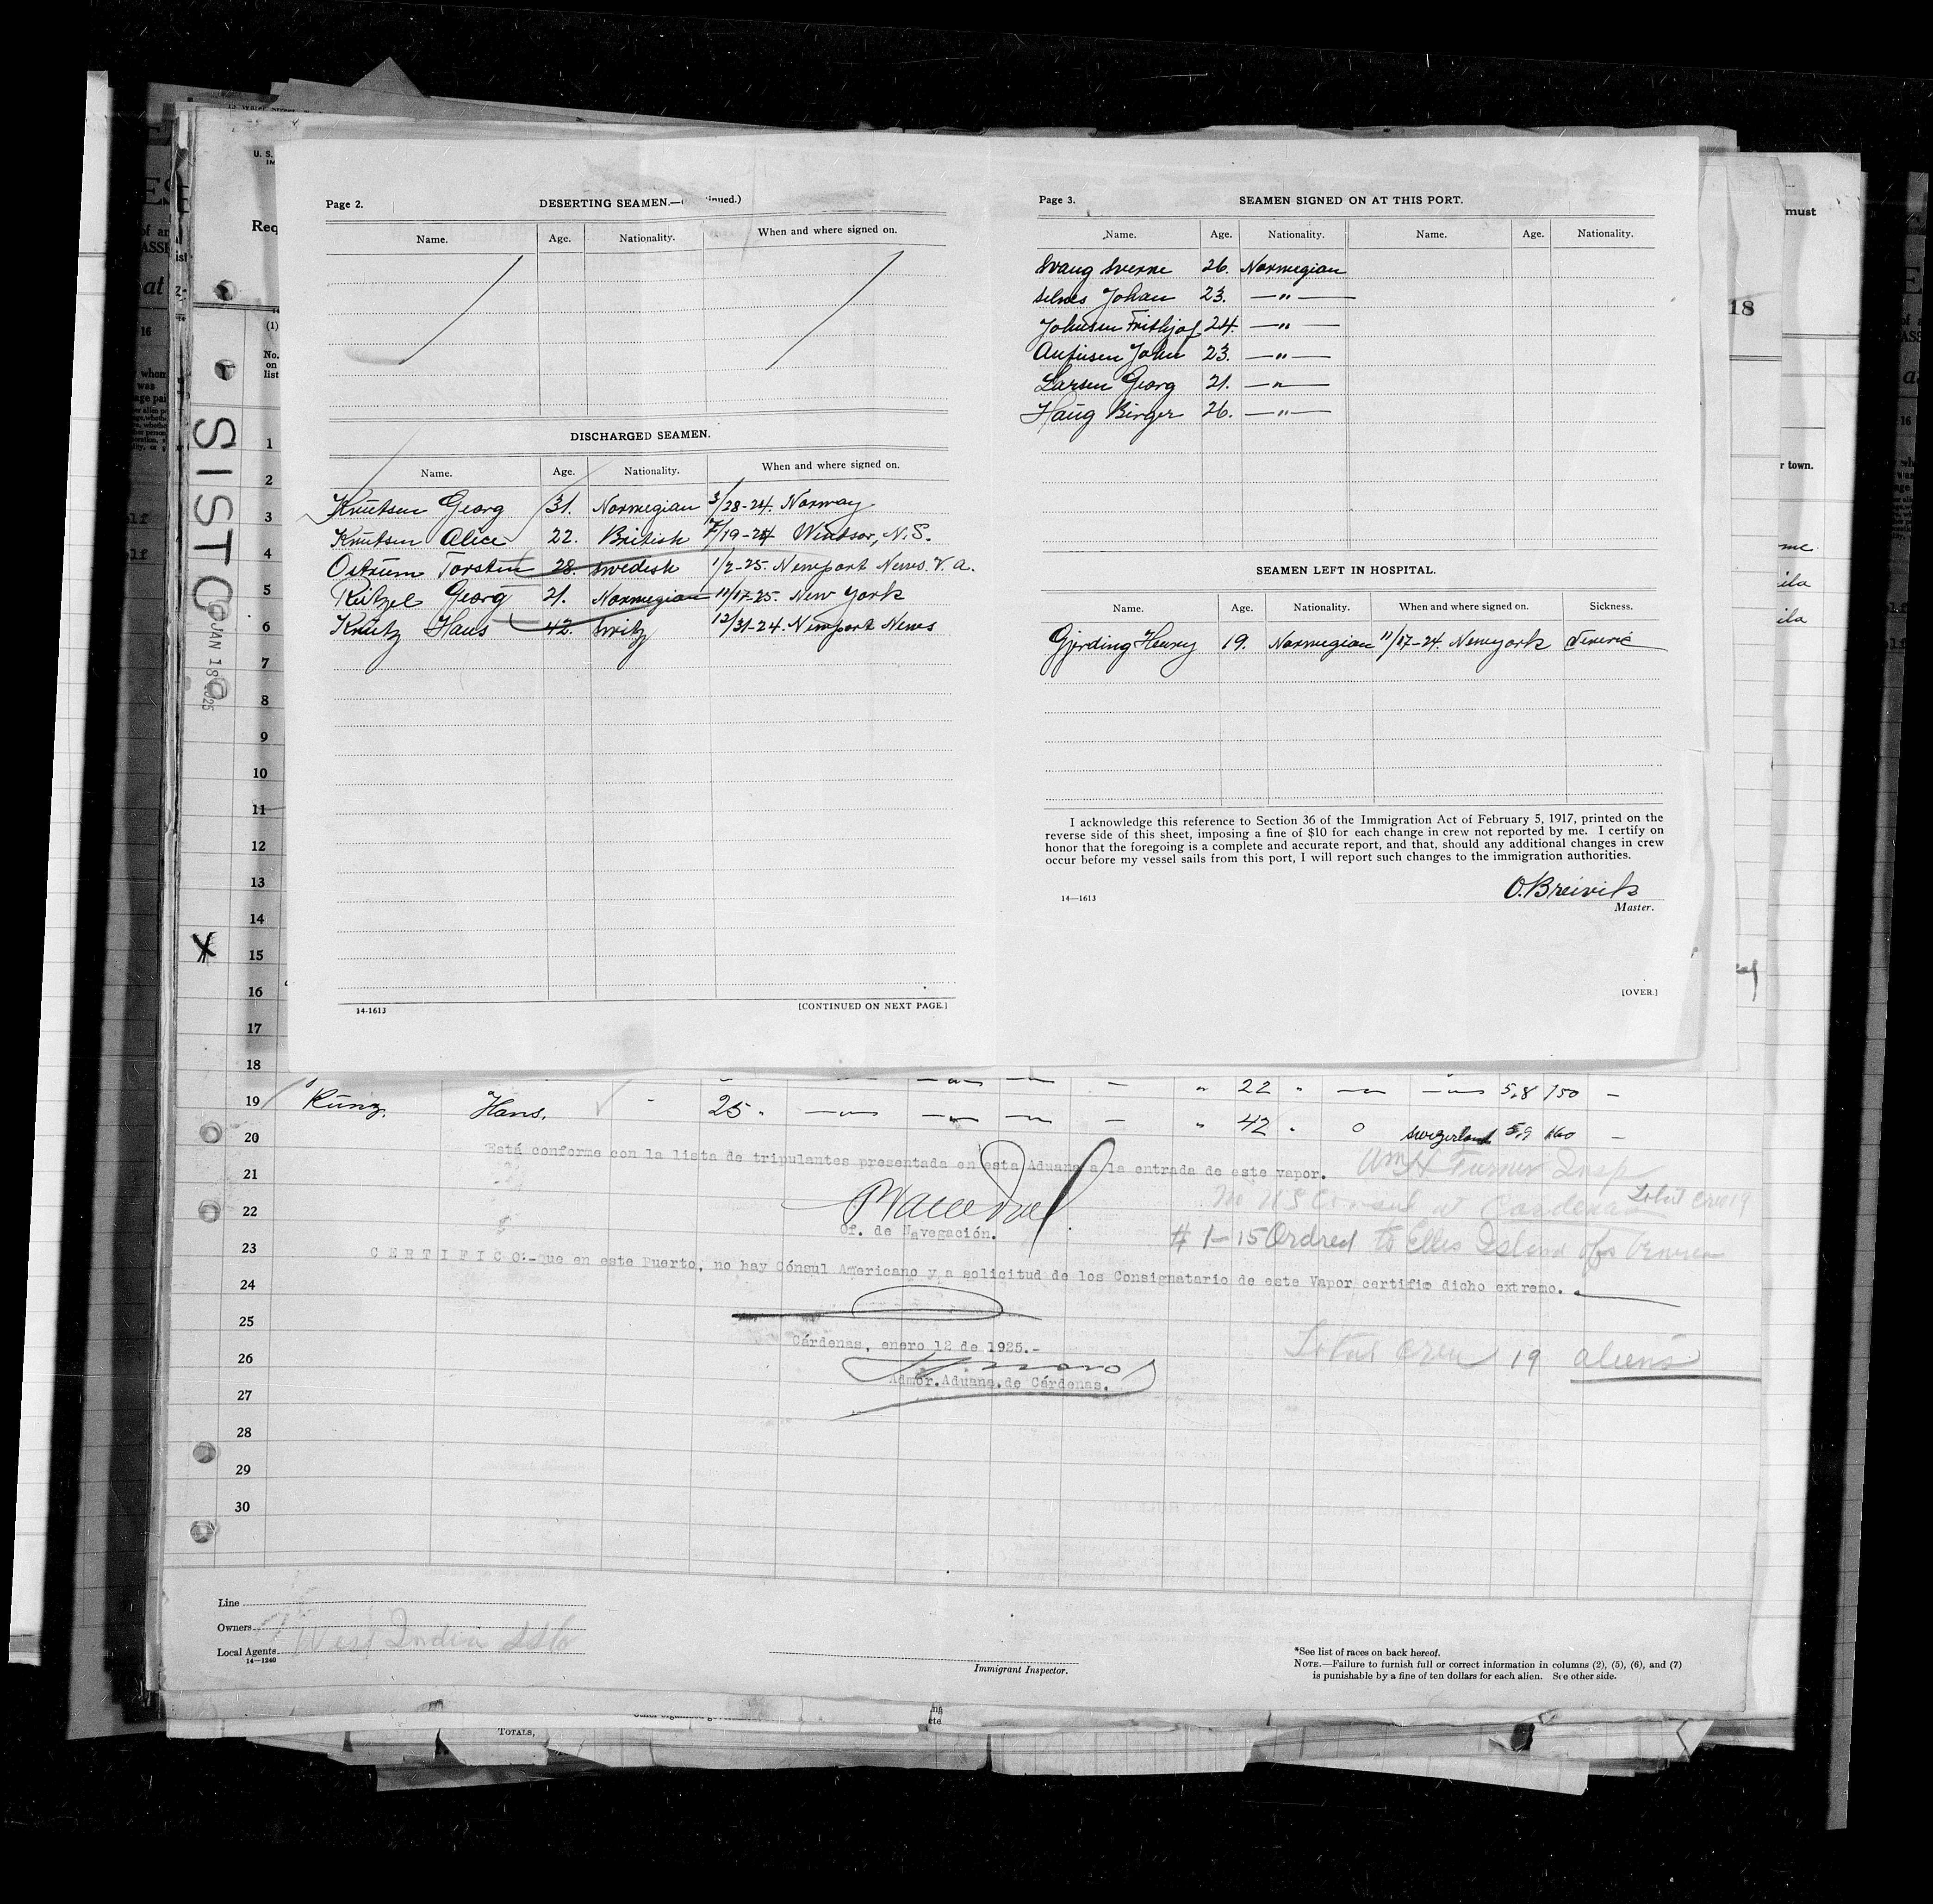 Page 2.
DESERTING SEAMEN.—( inued.)
Name. Age. Nationality. When and where signed on.
DISCHARGED SEAMEN.
Name. Age. Nationality. When and where signed on.
Knutsen Georg 31. Norwegian 3/28-24. Norway
Knutsen Alice 22. British 7/19-24 Windsor, N.S.
Torsten 28. Swedish 1/2-25. Newport News. V.a.
Georg 21. Norwegian 11/17-25. New York
Hans 42. Switz 12/31-24. Newport News
14-1613
[CONTINUED ON NEXT PAGE.]
Page 3.
SEAMEN SIGNED ON AT THIS PORT.
Name. Age. Nationality. Name. Age. Nationality.
Svang Sverre 26. Norwegian
Selnes Johan 23. —"—
Johnsen Frithjof 24. —"—
John 23. —"—
Larsen Georg 21. —"—
Haug Birger 26. —"—
SEAMEN LEFT IN HOSPITAL.
Name. Age. Nationality. When and where signed on. Sickness.
Gjerding Henry 19. Norwegian 11/17-24. Newyork
I acknowledge this reference to Section 36 of the Immigration Act of February 5, 1917, printed on the
reverse side of this sheet, imposing a fine of $10 for each change in crew not reported by me. I certify on
honor that the foregoing is a complete and accurate report, and that, should any additional changes in crew
occur before my vessel sails from this port, I will report such changes to the immigration authorities.
O. Breivik
14—1613
Master.
[OVER.]
U. S.
Req
(1)
No.
on
list
SISTO
JAN 18 1925
1
2
3
4
5
6
7
8
9
10
11
12
13
14
X 15
16
17
18
22 " — —"— 5,8 150 —
19 Kunz, Hans. 25 " —"— —"— — — " 42 " 0 Swizerland 5,9 160 —
20
21
22
23
24
25
26
27
28
29
30
Está conforme con la lista de tripulantes presentada en esta Aduana a la entrada de este vapor.
Wm H Turner Insp
No US Consul at Cardenas Total Crew 19
Of. de Navegación.
# 1-15 Ordred to Ellis Island
C E R T I F I C O:-Que en este Puerto, no hay Cónsul Americano y a solicitud de los Consignatario de este Vapor certifico dicho extremo.
Cárdenas, enero 12 de 1925.-
Total Crew 19 aliens
Admor.Aduana.de Cárdenas.
Line
Owners
Local Agents
West India SSCo
14—1240
Immigrant Inspector.
*See list of races on back hereof.
NOTE.—Failure to furnish full or correct information in columns (2), (5), (6), and (7)
is punishable by a fine of ten dollars for each alien. See other side.
TOTALS,
must
18
r town.